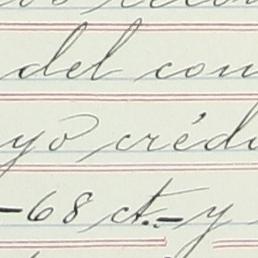 del con
yo crédi
-68 ct.- y